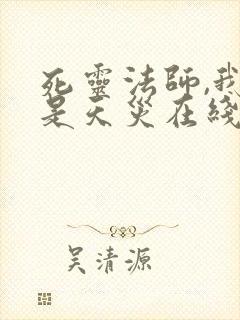 死靈法師,我
是天災在綫
吴清源